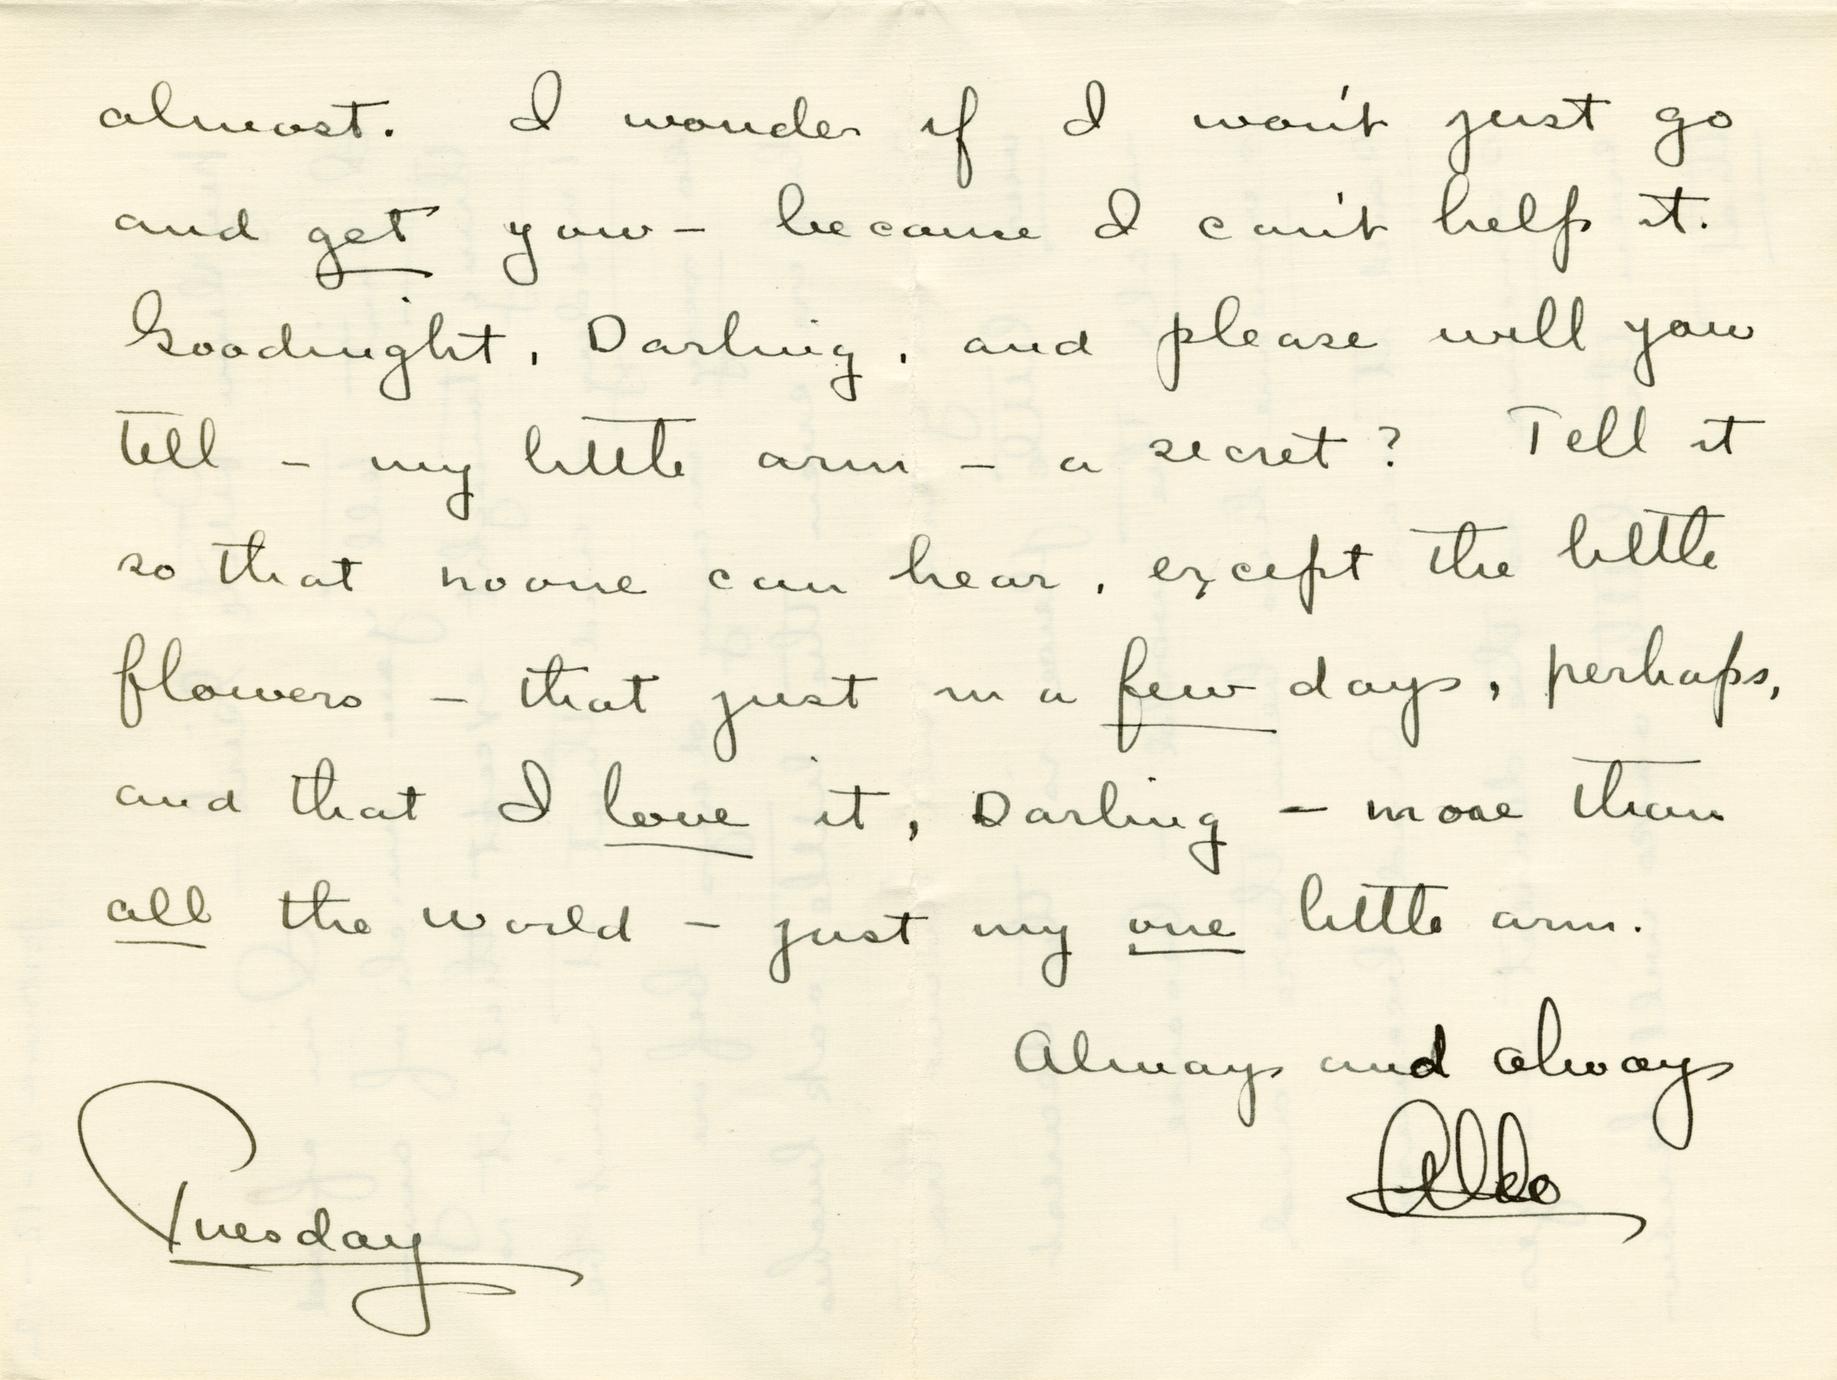 almost. I wonder if I won't just go
and get you – because I can't help it.
Goodnight, Darling, and please will you
tell – my little arm – a secret? Tell it
so that noone can hear, except the little
flowers – that just in a few days, perhaps,
and that I love it, Darling – more than
all the world – just my one little arm.
Always and always
Aldo
Tuesday